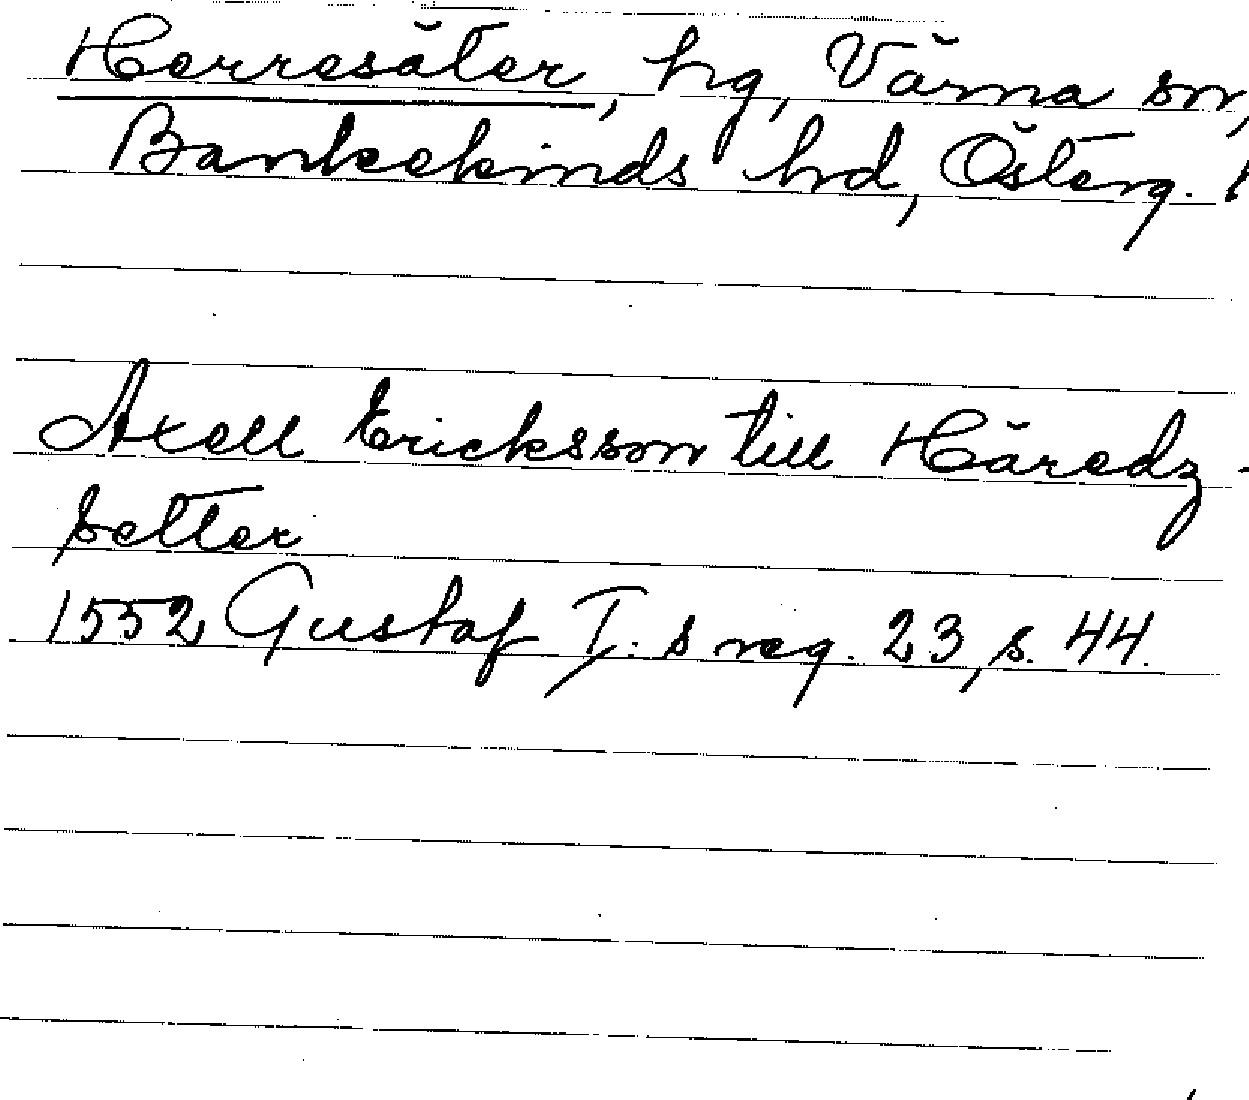 Herresäter, hg, Värna sn,
Bankekinds hrd, Österg. l
Axell Ericksson till Häredz-
setter
1552 Gustaf I:s reg. 23, s. 44.